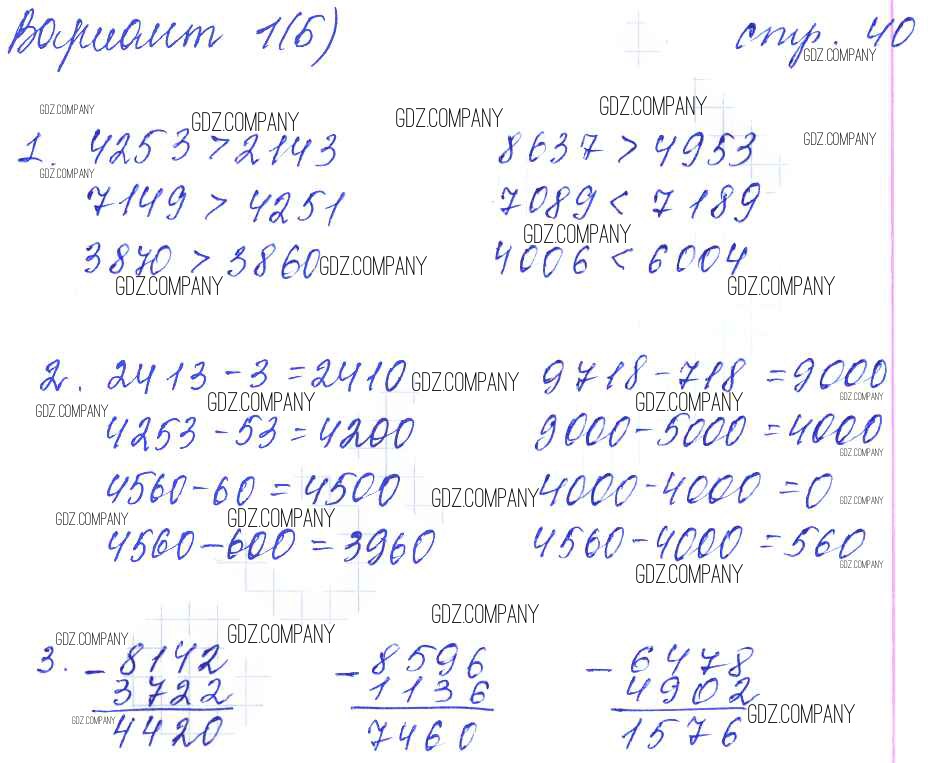 Вариант 1(Б) стр. 40
GDZ.COMPANY
GDZ.COMPANY GDZ.COMPANY GDZ.COMPANY GDZ.COMPANY GDZ.COMPANY
1. 4253 > 2143 8637 > 4953
GDZ.COMPANY
7149 > 4251 7089 < 7189
GDZ.COMPANY
3870 > 3860 GDZ.COMPANY 4006 < 6004
GDZ.COMPANY GDZ.COMPANY
2. 2413 - 3 = 2410 GDZ.COMPANY 9718 - 718 = 9000
GDZ.COMPANY GDZ.COMPANY GDZ.COMPANY GDZ.COMPANY
4253 - 53 = 4200 9000 - 5000 = 4000
GDZ.COMPANY
4560 - 60 = 4500 GDZ.COMPANY 4000 - 4000 = 0 GDZ.COMPANY
GDZ.COMPANY GDZ.COMPANY
4560 - 600 = 3960 4560 - 4000 = 560
GDZ.COMPANY GDZ.COMPANY
GDZ.COMPANY
GDZ.COMPANY GDZ.COMPANY
3. - 8142 - 8596 - 6478
3722 1136 4902
GDZ.COMPANY GDZ.COMPANY
4420 7460 1576